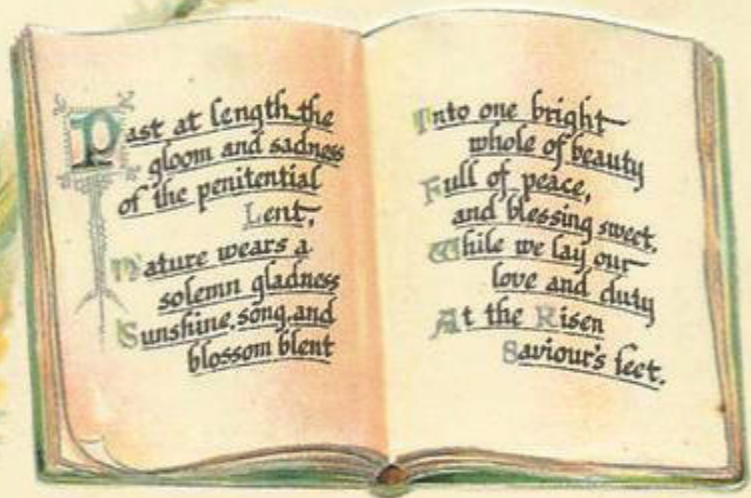 Past at length the
gloom and sadness
of the penitential
Lent,
Nature wears a
solemn gladness
Sunshine, song, and
blossom blent
Into one bright
whole of beauty
Full of peace,
and blessing sweet.
While we lay our
love and duty
At the Risen
Saviour's feet.